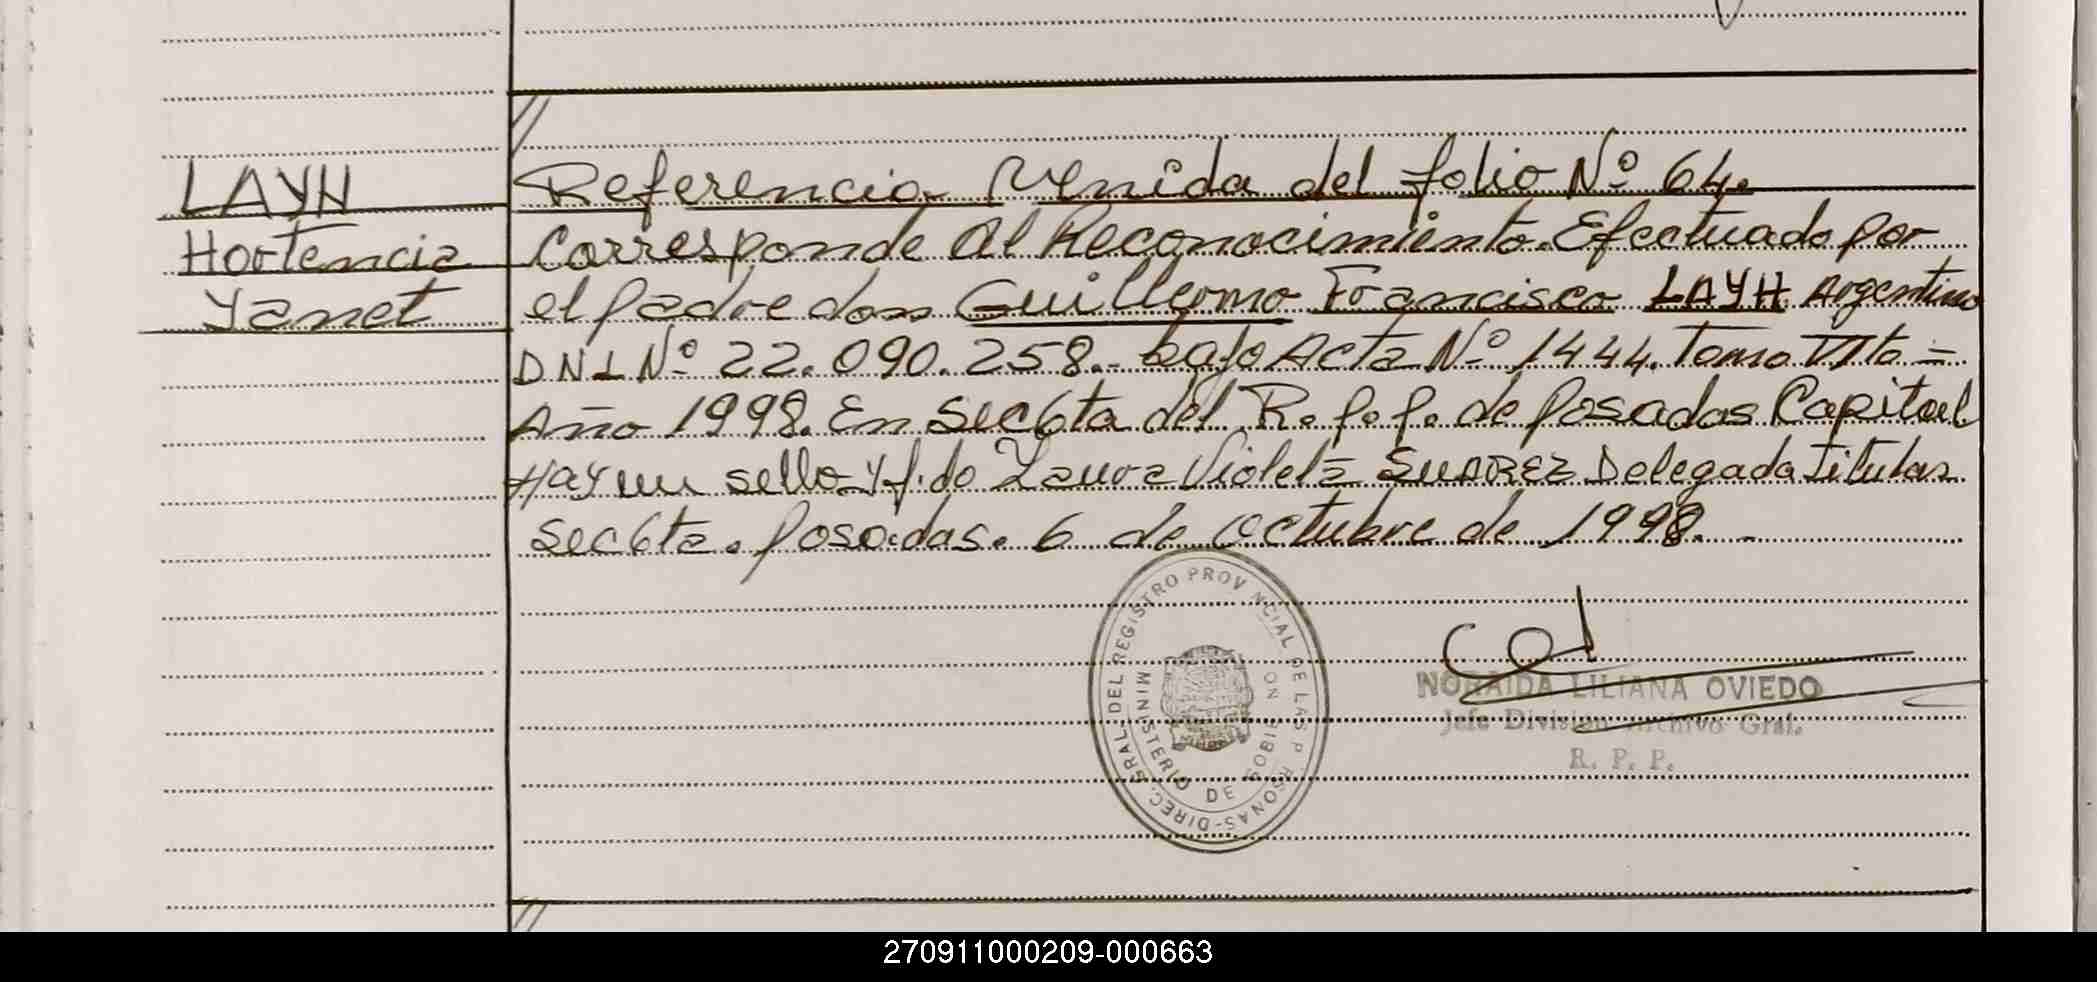 LAYH
Hortencia
Yanet
Referencia Venida del folio Nº 64.
Corresponde Al Reconocimiento. Efectuado por
el padre don Guillermo Francisco LAYH Argentino
DNI Nº 22.090.258.- bajo Acta Nº 1444. Tomo VIto =
Año 1998. En Sec 6ta del R.P.P. de Posadas Capital
Hay un sello y f.do Laura Violeta SUAREZ Delegada Titular
Sec 6ta. Posadas. 6 de Octubre de 1998.-
DIREC. GRAL. DEL REGISTRO PROVINCIAL DE LAS P RSONAS-
MINISTERIO DE GOBIE
NORAIDA LILIANA OVIEDO
Jefe Division Archivo Gral.
R. P. P.
270911000209-000663